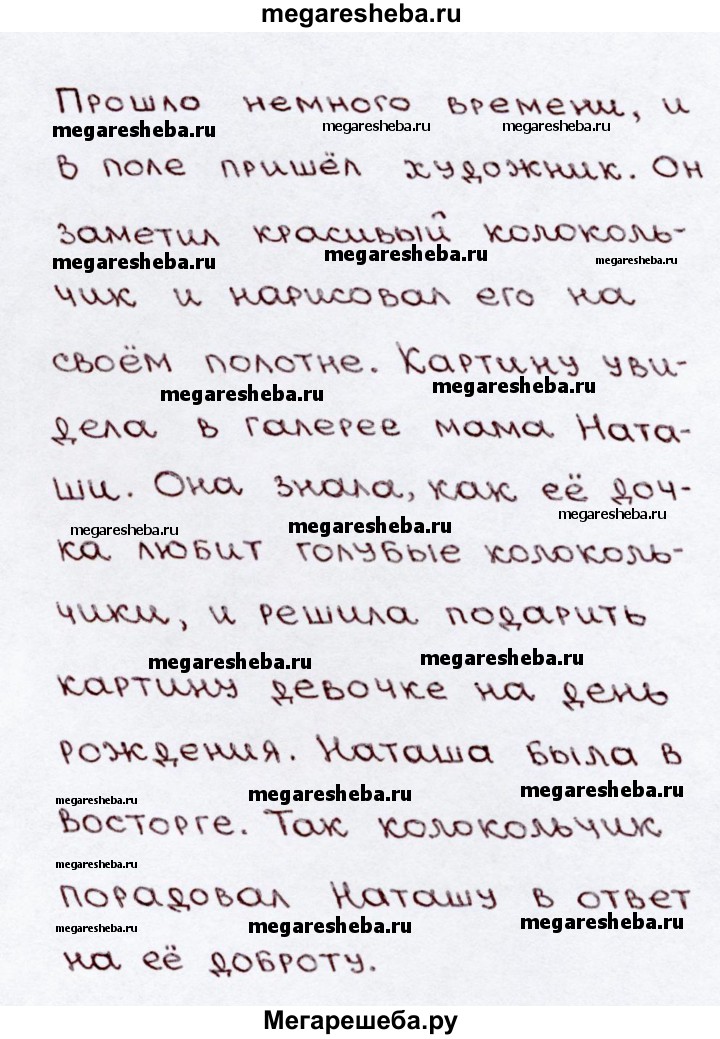 megaresheba.ru
Прошло немного времени, и
megaresheba.ru megaresheba.ru megaresheba.ru
в поле пришёл художник. Он
заметил красивый колоколь-
megaresheba.ru megaresheba.ru megaresheba.ru
чик и нарисовал его на
своём полотне. Картину уви-
megaresheba.ru megaresheba.ru
дела в галерее мама Ната-
ши. Она знала, как её доч-
megaresheba.ru megaresheba.ru megaresheba.ru
ка любит голубые колоколь-
чики, и решила подарить
megaresheba.ru megaresheba.ru
картину девочке на день
рождения. Наташа была в
megaresheba.ru megaresheba.ru megaresheba.ru
восторге. Так колокольчик
megaresheba.ru
порадовал Наташу в ответ
megaresheba.ru megaresheba.ru megaresheba.ru
на её доброту.
Мегарешеба.ру